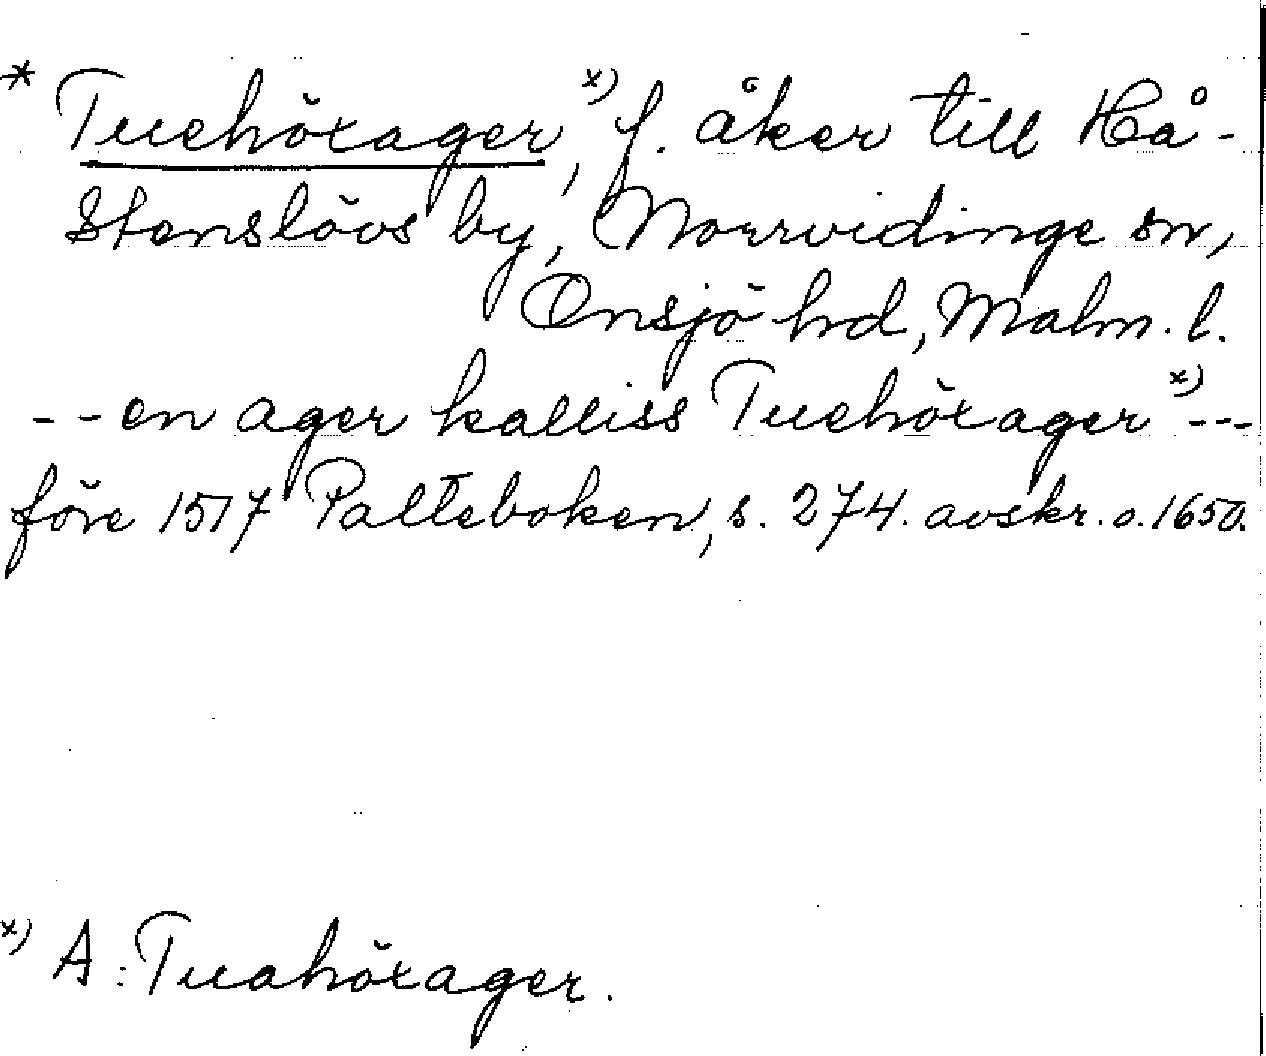 * Tuehöxager,x) f. åker till Hå-
stenslövs by, Norrvidinge sn,
Onsjö hd, Malm. l.
-- en ager kalliss Tuehöxager x) ---
före 1517 Palteboken, s. 274. avskr. o. 1650.
x) A: Tuahöxager.